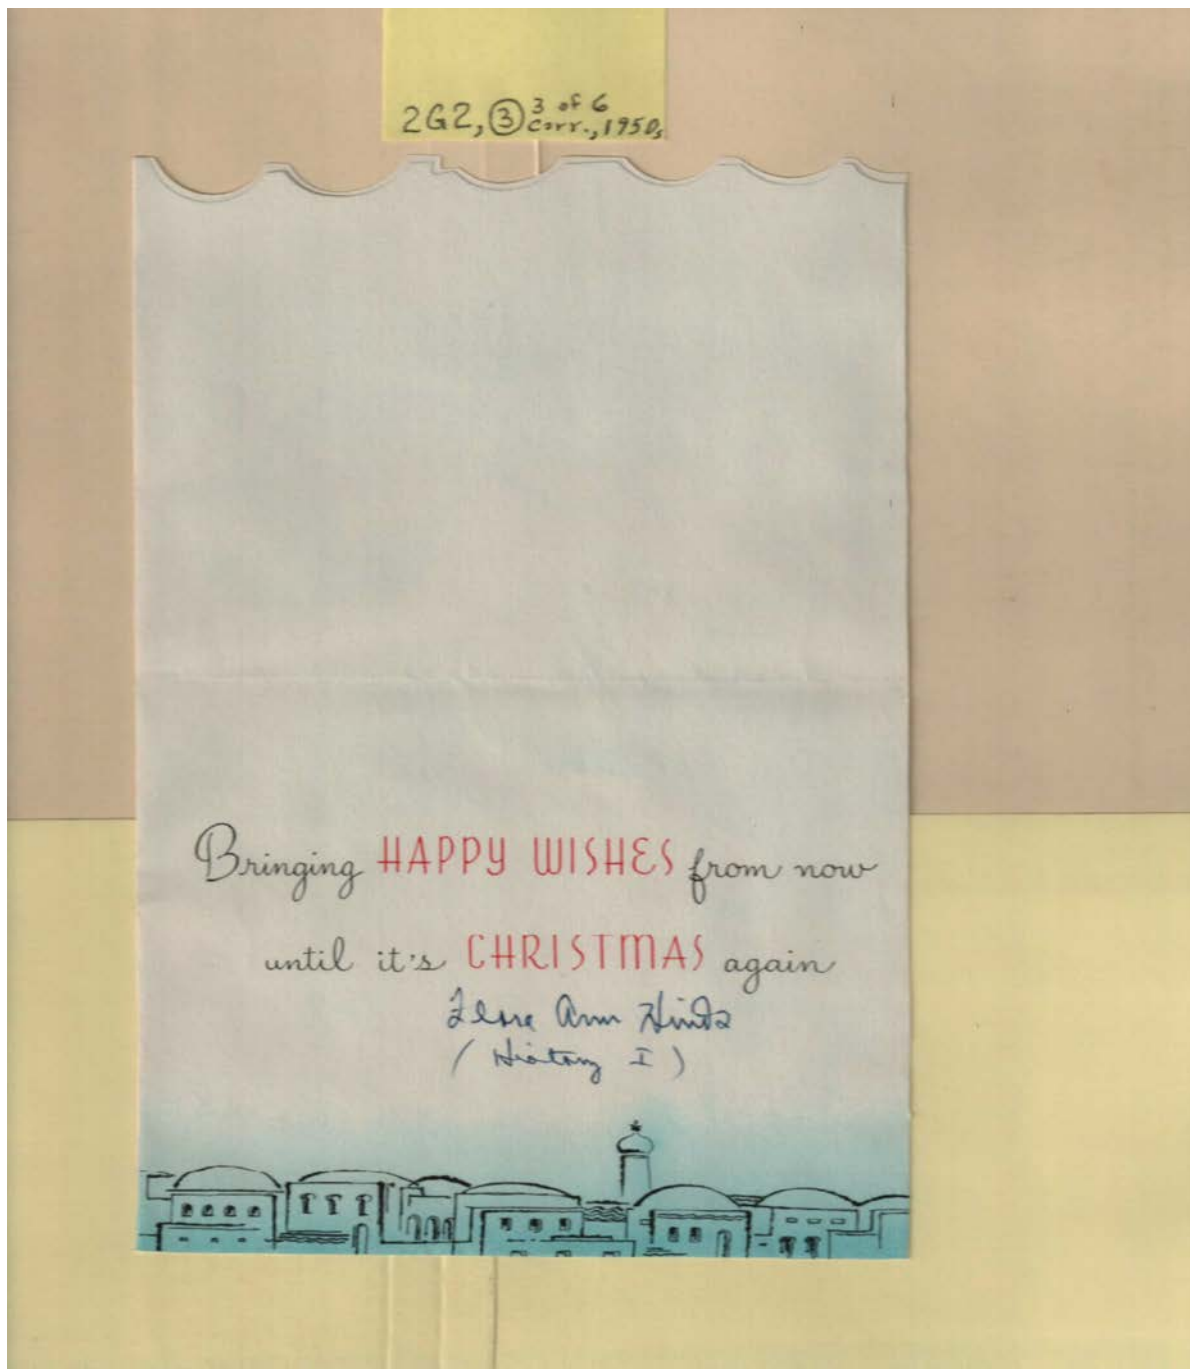 2G2, ③ 3 of 6
Corr., 1950s
Bringing HAPPY WISHES from now
until it's CHRISTMAS again
Ann Hinds
(History I)